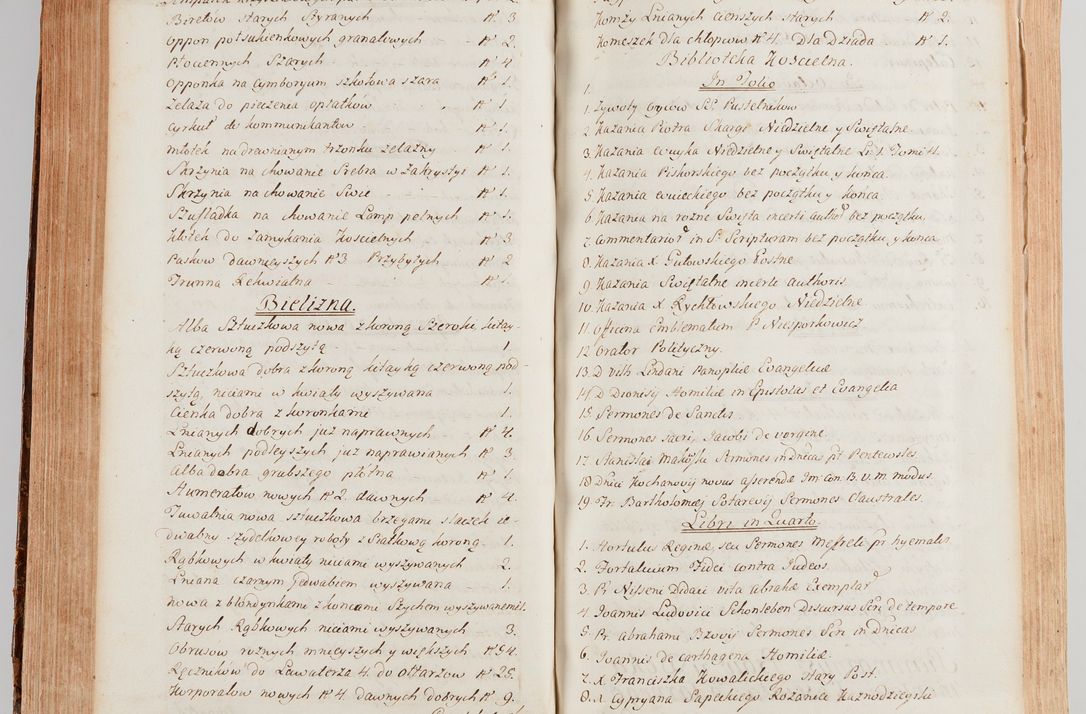 Biretów starych Szyranych N° 3
Oppon potsukienkowych granatowych N° 2.
Płociennych Szarych N° 4
Opponka na Cymboryum szkotowa szara N° 1.
Zelaza do pieczenia opłatkow N° 1.
Cyrkuł do kommunikantow N° 1.
Młotek na drewnianym trzonku zelazny N° 1.
Skrzynia na chowanie Srebra w Zakrystyi N° 1.
Skrzynia na chowanie Swiec N° 1.
Szufladka na chowanie Lamp pełnych N° 1.
Kłotek do Zamykania Koscielnych N° 3
Paskow dawnieyszych N° 3 Przybyłych N° 2
Trunna Rekwialna N° 1.
Bielizna.
Alba Sztuczkowa nowa z koroną Szeroką kitay-
ką czerwoną podszytą 1
Sztuczkowa dobra z koroną kitayką czerwoną pod-
szytą, niciami w kwiaty wyszywana 1.
Cienka dobra z koronkami 1.
Lnianych dobrych juz naprawnych N° 4.
Lnianych podleyszych juz naprawianych N° 3.
Alba dobra grubszego płotna N° 1
Humerałow nowych N° 2. dawnych N° 4.
Tuwalnia nowa sztuczkowa brzegami siaczek ie-
dwabny szydełkowey roboty z Siatkową koroną 1.
Rąbkowych w kwiaty niciami wyszywanych 2.
Lniana czarnym Jedwabiem wyszywana 1.
Nowa z blondynkami z koncami Szychem wyszywanemi 1.
Starych Rąbkowych niciami wyszywanych 3.
Obrusow roznych mnieyszych y większych N° 54.
Ręczników do Lawaterza 4. do ołtarzow N° 25.
Korporałow nowych N° 4 dawnych dobrych N° 9.
Komży Lnianych cienszych starych N° 2.
Komeszek dla chłopcow N° 4. Dla Dziada N° 1.
Biblioteka Koscielna.
In Folio
1.
1. Zywoty Oycow SS. Pustelnikow
2. Kazania Piotra Skargi Niedzielne y Swiętalne
3. Kazania Niedzielne y Swiętalne Tomi 4.
4. Kazania Piskorskiego bez początku y konca.
5 Kazania bez początku y konca
6 Kazania na rozne Swięta incerti Author bez początku.
7. Commentarior in S. Scripturam bez początku y konca
8. Kazania X Gutowskiego Postne
9 Kazania Swiętalne incerti authoris
10. Kazania X Rychłowskiego Niedzielne
11. Officina Emblematum P. Niesporkowicz
12 Orator Polityczny.
13. D Vilh Lindani Panoplie Evangelicæ
14 D Dionisij Homiliæ in Epistolas et Evangelia
15. Sermones de Sanctis.
16 Sermones sacri Jacobi de vorgene
17. Stanislai Sermones in Dnicas pt Pentecostes.
18 Dnici Kochanovij novus asserendæ Im: Con. B. V. M modus.
19. Fr. Bartholomej Sermones Claustrales.
Libri in Quarto.
1. Hortulus Reginæ, seu Sermones Mefreti pr hyemalis
2. Fortalicium Fidei contra Judeos
3. Pr Nissene Didaci vita abrahæ Exemplar
4. Joannis Ludovici Schonleben Discursus Srn de tempore
5. Pr. abrahami Bzovij Sermones Srn in Dnicas
6. Joannis de Carthagena Homiliæ
7. X Franciszka Kowalickiego Stary Post.
8. X Cypryana Sapeckiego Rozanieс Kaznodzieyski